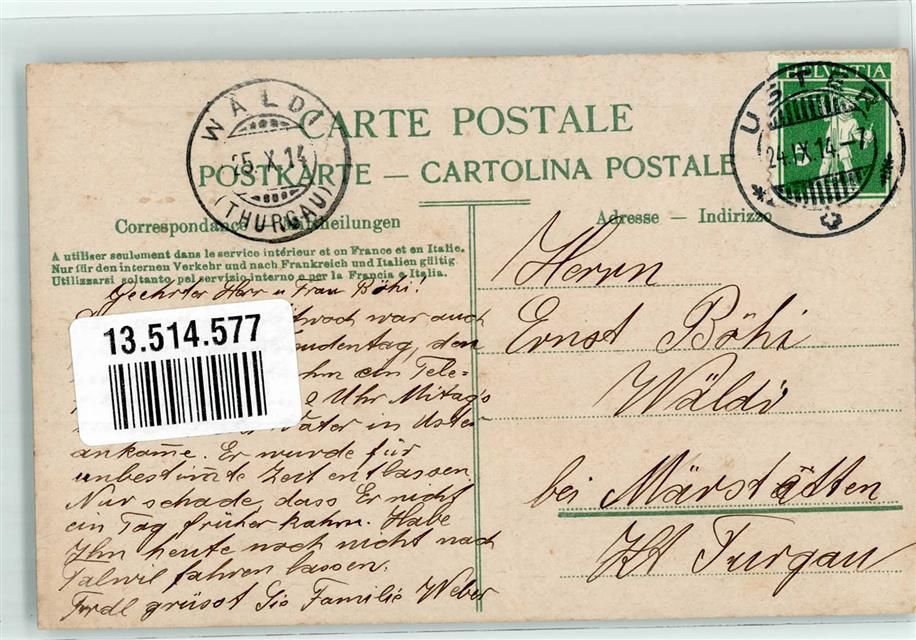 HELVETIA
5
USTER
24.IX.14.-7
WÄLDI
25.X.14
(THURGAU)
CARTE POSTALE
POSTKARTE — CARTOLINA POSTALE
Correspondance — Mittheilungen
Adresse — Indirizzo
A utiliser seulement dans le service intérieur et en France et en Italie.
Nur für den internen Verkehr und nach Frankreich und Italien gültig.
Utilizzarsi soltanto pel servizio interno e per la Francia e Italia.
Geehrter Herr u Frau Böhi!
twoch war auch
udentag, den
13.514.577
ein Tele=
Uhr Mitags
Vater in Uster
ankam̅e. Er wurde für
unbestim̅te Zeit entlassen
Nur schade, dass Er nicht
ein Tag früher kahm. Habe
Ihm heute noch nicht nach
Talwil fahren lassen.
Frdl grüsst Sie Familie Weber
Herrn
Ernst Böhi
Wäldi
bei Märstätten
Kt Turgau